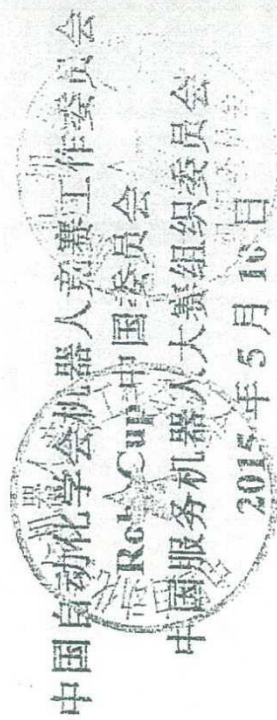 中国自动化学会机器人竞赛工作委员会
RoboCup中国委员会
中国服务机器人大赛组织委员会
2015年5月10日